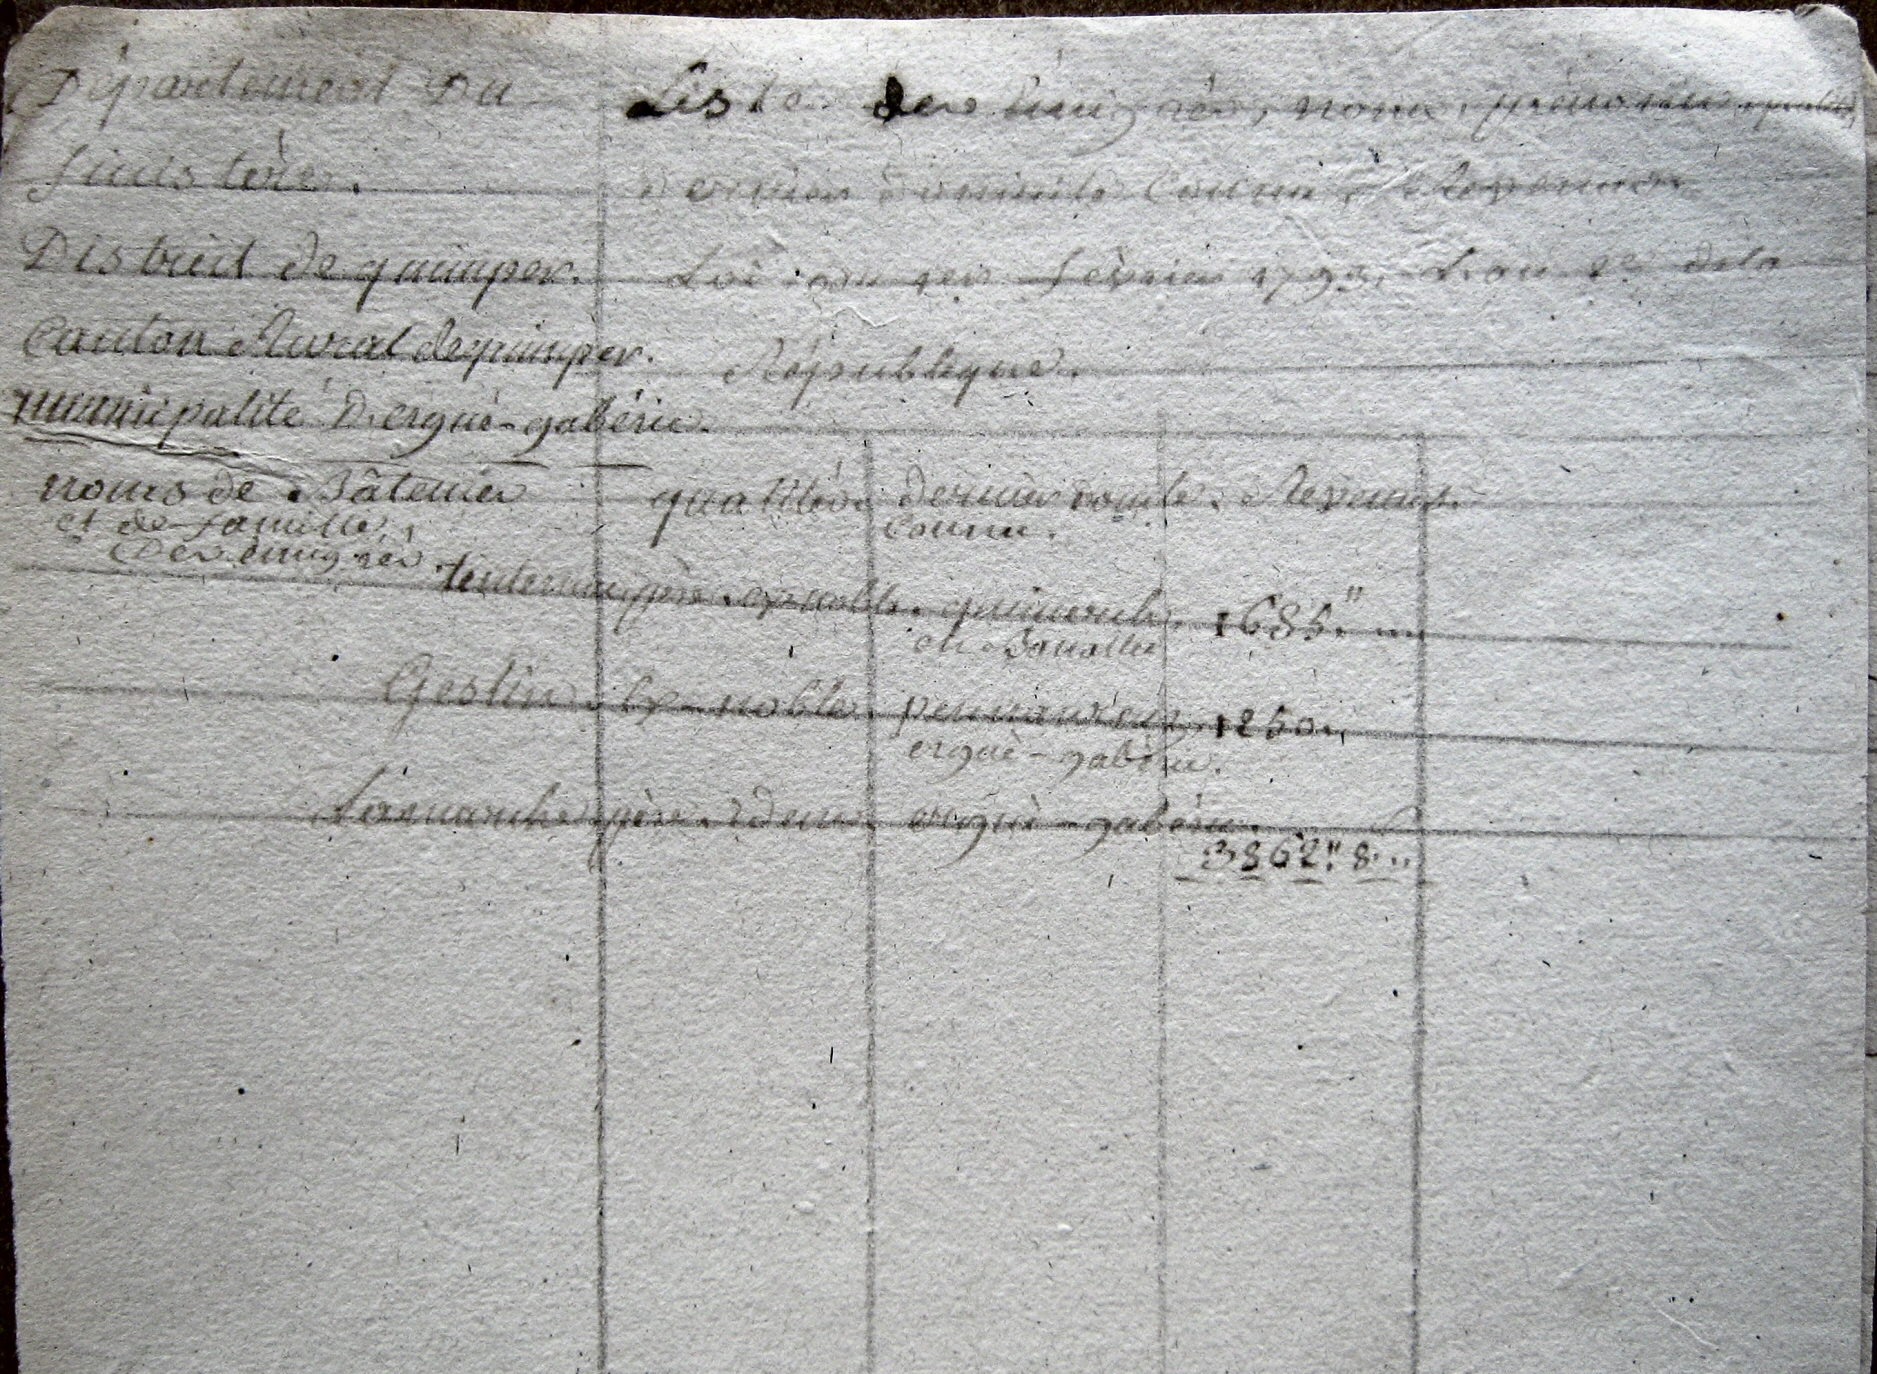 Département Du
finistère.
District de quimper.
Canton Rural de quimper.
municipalité D'ergué-gabéric.
Liste des émigrés, noms, prénoms,
dernier domicile connu, & Revenus
Loi du 1er février 1793, L'an 2e dela
République.
noms de Bâteme
et de famille,
Des émigrés.
qualités.
dernier domicile
connu.
Revenus.
père. ex noble. 1685." ...
en Banallec
Gestin. Ex-noble. 1250.
ergué-gabéric.
Lamarche père. Idem. ergué-gabéric.
3862." 8...